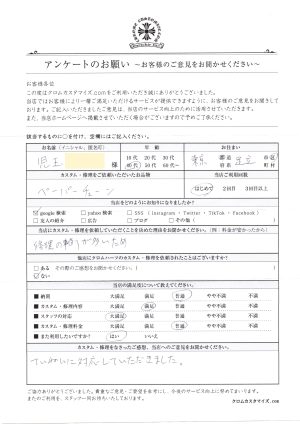 アンケートのお願い ～お客様のご意見をお聞かせください～
お客様各位
この度はクロムカスタマイズ.comをご利用いただき誠にありがとうございました。
当店ではお客様により一層ご満足いただけるサービスが提供できますように、お客様のご意見をお聞きしております。
ご記入いただきましたご意見は、当店のサービス向上のために活用させていただきます。
また、当店ホームページへ掲載させていただく場合がございますので予めご了承ください。
該当するものに○を付け、空欄にはご記入ください。
お名前（イニシャル、匿名可） 年 齢 お住まい
児玉 様
10代 20代 30代
40代 50代 60代～
東京 都道府県 足立 市区町村
カスタム・修理をご依頼いただいたお品物 当店ご利用回数
ペーパーチェーン はじめて 2回目 3回目以上
当店をどのようにお知りになりましたか？
☑google検索 □yahoo検索 □SNS（Instagram・Twitter・TikTok・Facebook）
□友人の紹介 □広告 □ブログ □その他（ ）
カスタム・修理を依頼していただくことを決めた理由をお聞かせください。
修理の頼りが多いため
他店にクロムハーツのカスタム・修理を依頼されたことはございますか？
□ある その際のご感想をお聞かせください（ ）
☑ない
当店の満足度について教えてください。
■納期 大満足 満足 普通 やや不満 不満
■カスタム・修理内容 大満足 満足 普通 やや不満 不満
■スタッフの対応 大満足 満足 普通 やや不満 不満
■カスタム・修理料金 大満足 満足 普通 やや不満 不満
■また利用したいですか？ はい いいえ
カスタム・修理をなさったご感想、当店へのご意見をお聞かせください。
ていねいに対応していただきました。
ご協力ありがとうございました。貴重なご意見・ご要望を参考にし、今後のサービス向上に努めてまいります。
またのご利用を、スタッフ一同お待ちいたしております。
クロムカスタマイズ.com